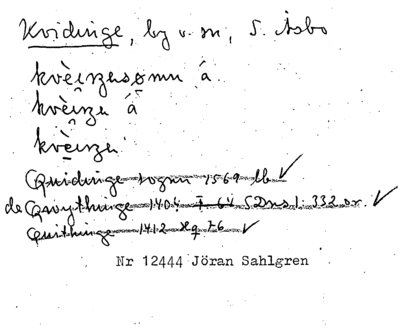 Kvidinge, by o. sn, S. Åsbo
kvèi̯nzensǫmn á
kvèi̯nze á
kvèi̯nze
Quidinge sognn 1569 lb
de Qwythinge 1404 F 64 SDns 1:332 or.
Quithinge 1412
Nr 12444 Jöran Sahlgren